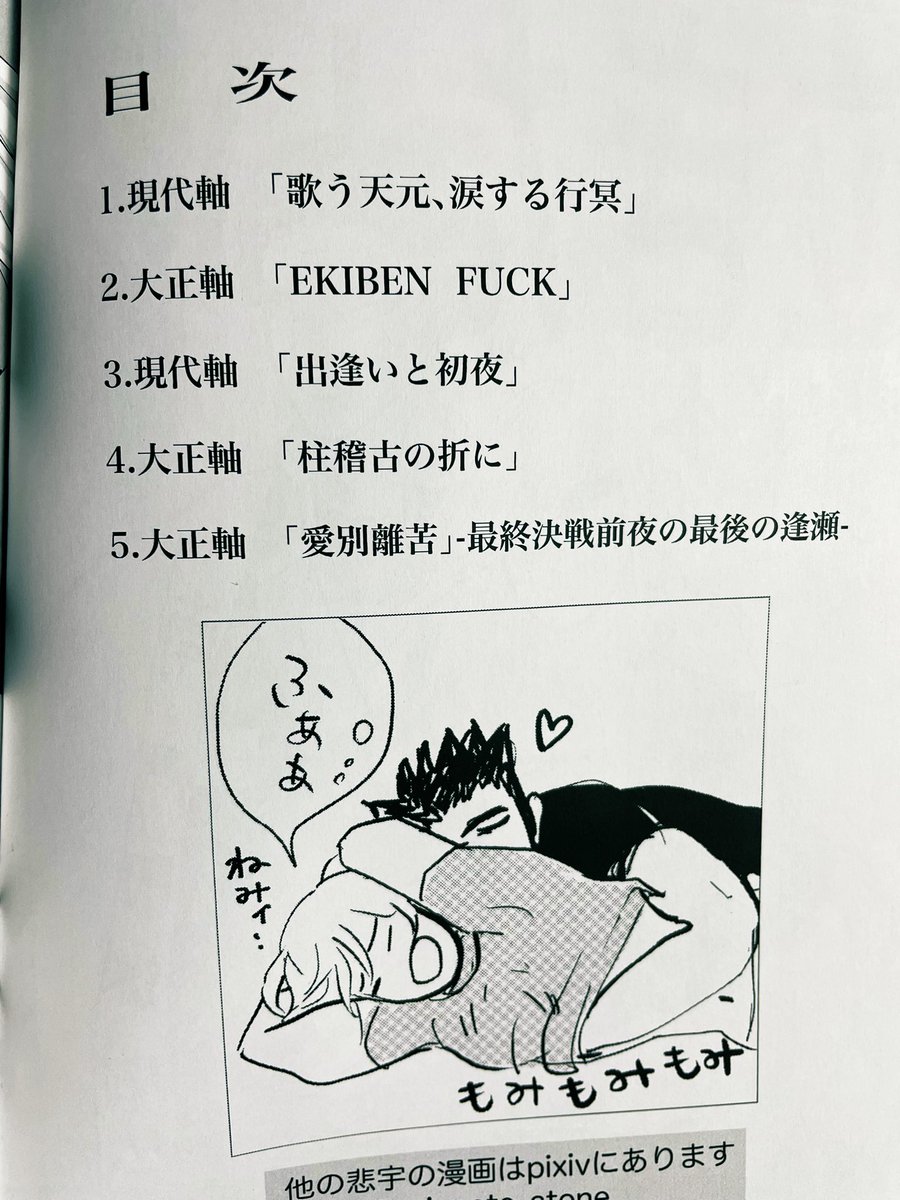 目 次
1.現代軸 「歌う天元、涙する行冥」
2.大正軸 「EKIBEN FUCK」
3.現代軸 「出逢いと初夜」
4.大正軸 「柱稽古の折に」
5.大正軸 「愛別離苦」-最終決戦前夜の最後の逢瀬-
ふぁあ
ねみィ‥
もみもみもみ
他の悲宇の漫画はpixivにあります